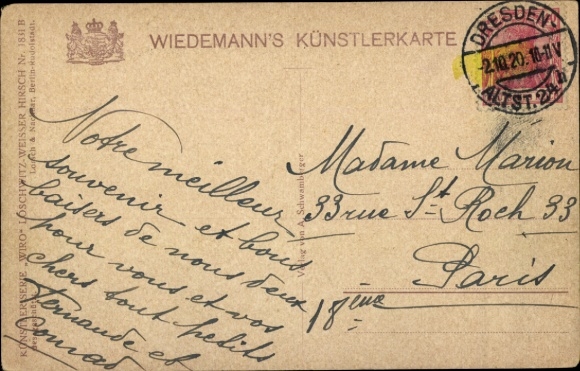 WIEDEMANN'S KÜNSTLERKARTE
DRESDEN-
-2.10.20.10-11 V
ALTST. 24 h
KÜNSTLERSERIE „WIRO“ LOSCHWITZ-WEISSER HIRSCH Nr. 1831 B
Verlag von A. Schwamberger
Votre meilleur
souvenir et bons
baisers de nous deux
pour vous et vos
chers tout petits
Fernande et
Conrad
Madame Marion
33 rue St Roch 33
Paris
18ème